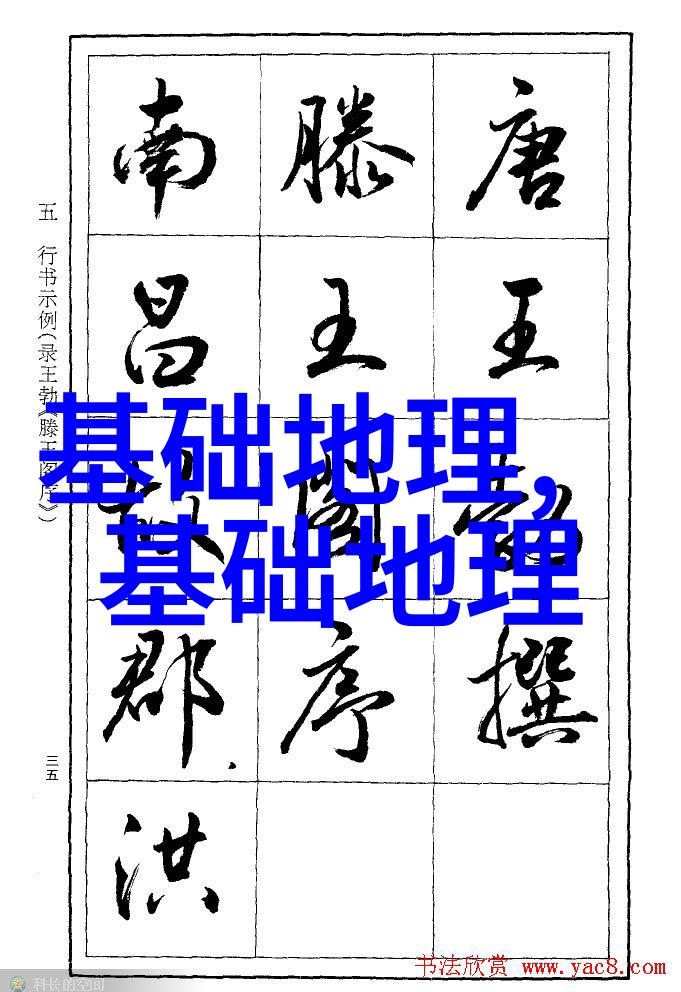 唐王勃撰
滕王阁序
南昌故郡洪
基础地理,
基础地理
五 行书示例(录王勃《滕王阁序》)
三五
书法欣赏 www.yac8.com
科长的空间